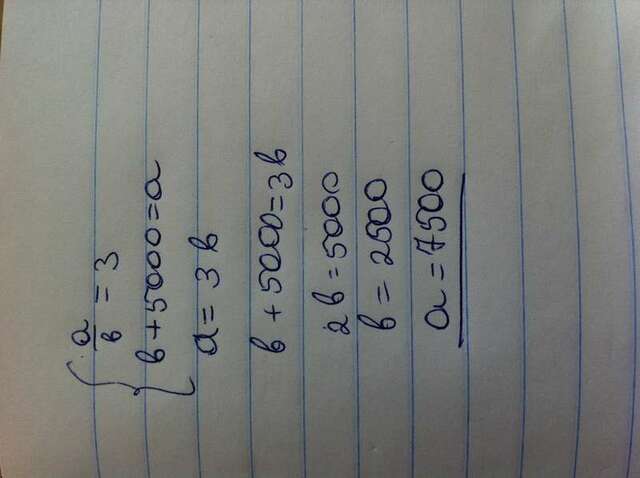 { a/b = 3
b + 5000 = a
a = 3b
b + 5000 = 3b
2b = 5000
b = 2500
a = 7500